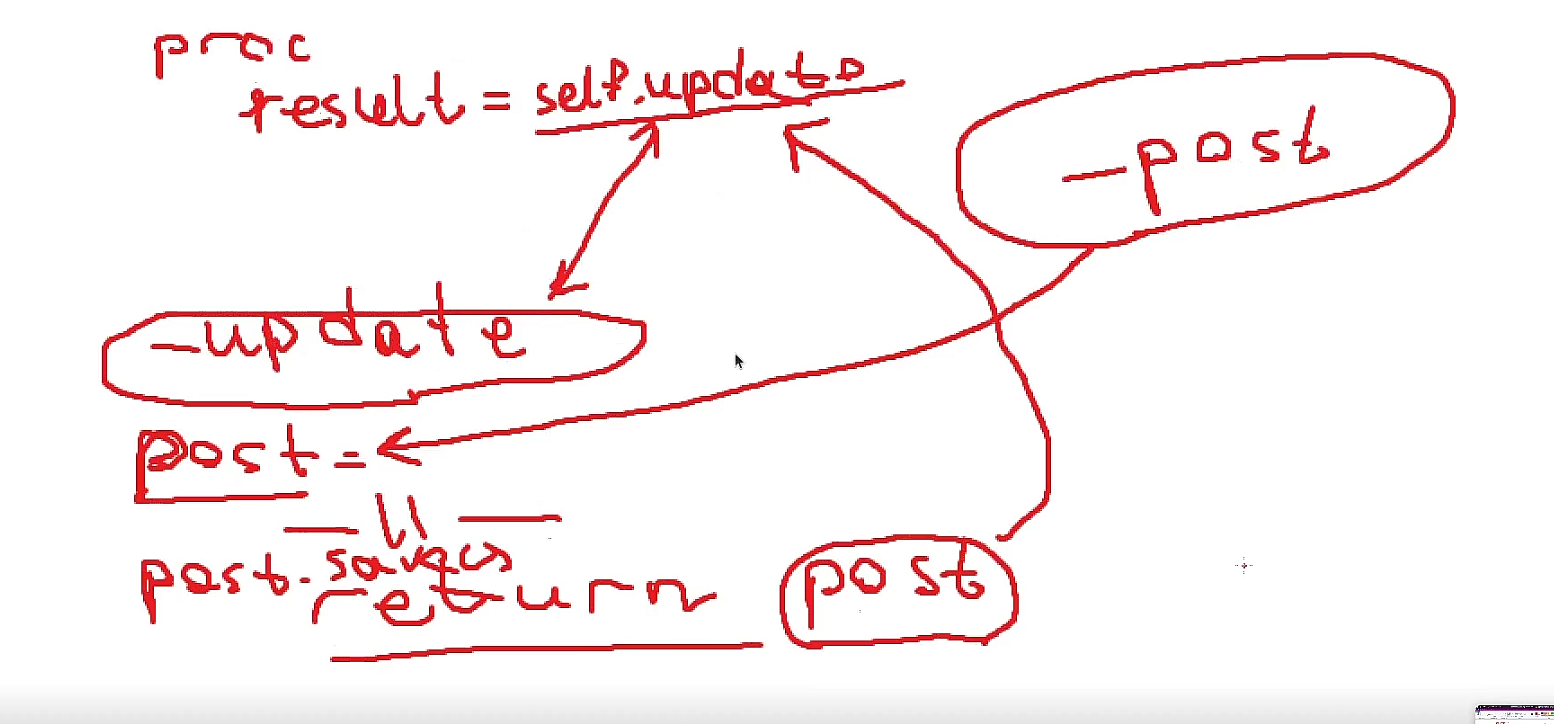 proc
result = self.update
-post
-update
post =
— 11 —
post.save()
return post